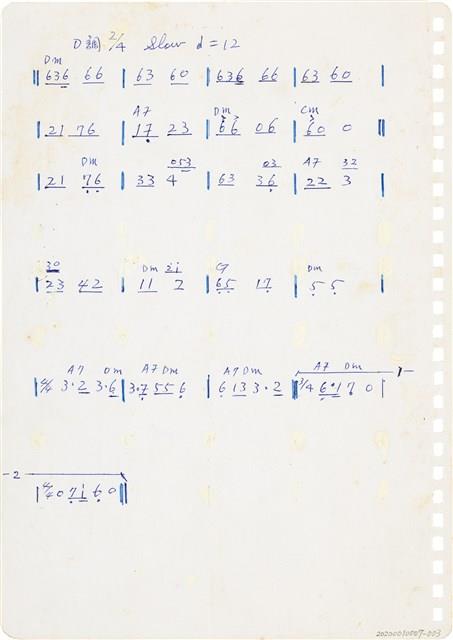 D調 2/4 Slow d = 12
Dm
636 66 63 60 636 66 63 60
A7 Dm Cm
21 76 17 23 66 06 60 0
Dm 053 03 A7 32
21 76 33 4 63 36 22 3
30 Dm 2i Dm
23 42 11 2 65 17 5 5
A7 Dm A7 Dm A7 Dm A7 Dm 1
3·2 3·6 3·7 5 5 6 6 1 3 3·2 3/4 6·1 7 0
2
0 7 i 6 0
20200010007-003